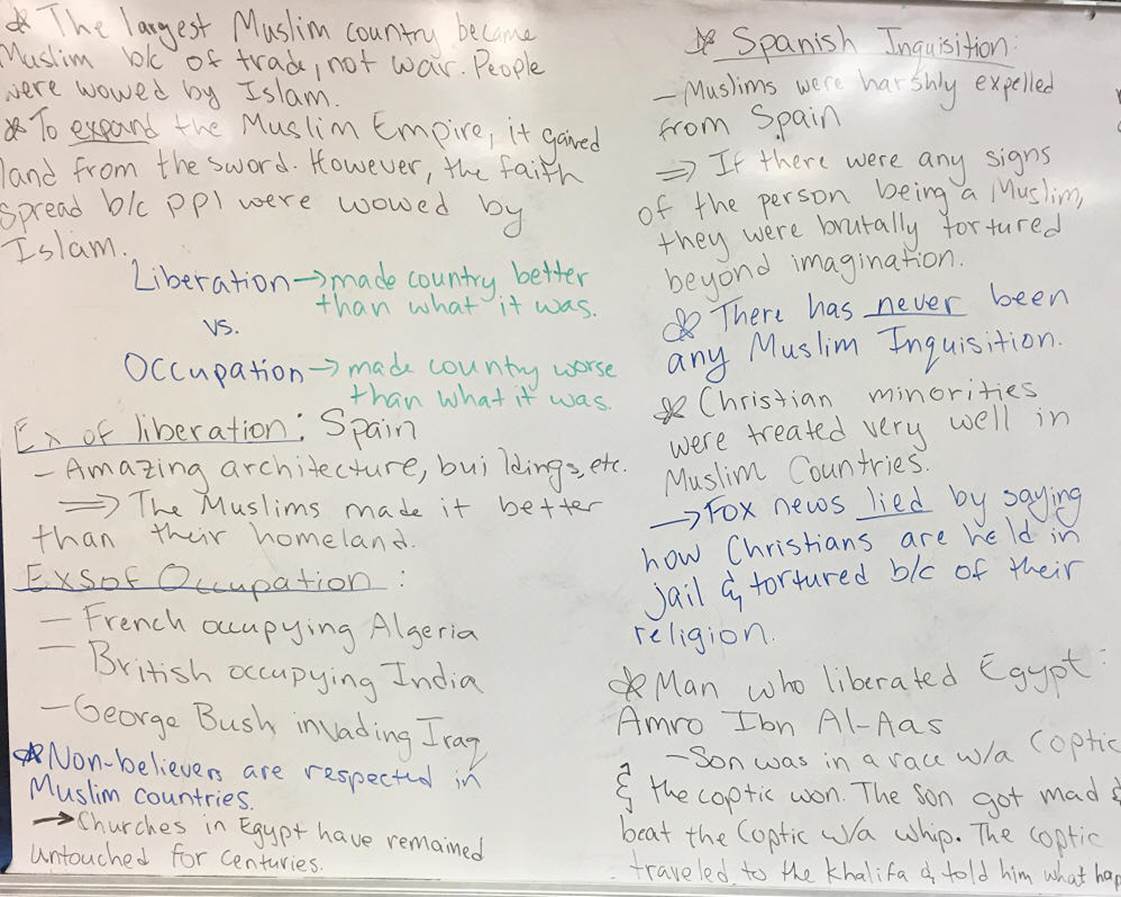 * The largest Muslim country became
Muslim b/c of trade, not war. People
were wowed by Islam.
* To expand the Muslim Empire, it gained
land from the sword. However, the faith
spread b/c ppl were wowed by
Islam.
Liberation → made country better
than what it was.
vs.
Occupation → made country worse
than what it was.
Ex of liberation: Spain
- Amazing architecture, buildings, etc.
⇒ The Muslims made it better
than their homeland.
Exs of Occupation:
- French occupying Algeria
- British occupying India
- George Bush invading Iraq
* Non-believers are respected in
Muslim countries.
→ Churches in Egypt have remained
untouched for centuries.
* Spanish Inquisition:
- Muslims were harshly expelled
from Spain
⇒ If there were any signs
of the person being a Muslim,
they were brutally tortured
beyond imagination.
* There has never been
any Muslim Inquisition.
* Christian minorities
were treated very well in
Muslim Countries.
→ Fox news lied by saying
how Christians are held in
jail & tortured b/c of their
religion.
* Man who liberated Egypt:
Amro Ibn Al-Aas
- Son was in a race w/a Coptic
& the coptic won. The son got mad &
beat the Coptic w/a whip. The coptic
traveled to the khalifa & told him what hap